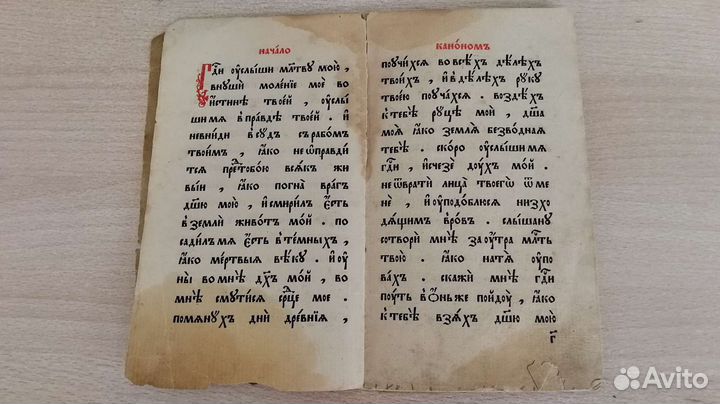 нача́ло
Гдⷭ҇и ᲂу҆слы́ши мл҃тву мою̀ ,
внꙋшѝ моле́нїе моѐ во
и҆́стинѣ твое́й , ᲂу҆слы́
ши мѧ в҆пра́вдѣ твое́й . и҆
невни́ди в҆сꙋ́дъ съ рабо́мъ
твои́мъ , ꙗ҆́ко не ѡ҆правди́
тсѧ пре́дⸯтобо́ю всѧ́къ жи
вы́и , ꙗ҆́ко погна̀ вра́гъ
дш҃ꙋ мою̀ , и҆ смири́лъ є҆́сть
в҆землѝ живо́тъ мо́й . по
сади́лъ мѧ є҆́сть в҆те́мныхъ ,
ꙗ҆́ко ме́ртвыѧ вѣ́кꙋ . и҆ ᲂу҆
ны̀ во мнѣ̀ дх҃ъ мо́й , во
мнѣ̀ смꙋти́сѧ ср҃це моѐ .
помѧнꙋ́хъ дни̑ дре́внїѧ ,
кано́номъ
поᲂучи́хсѧ во всѣ́хъ дѣ́лѣхъ
твои́хъ , и҆ в҆дѣ́лѣхъ рꙋкꙋ̀
твоє́ю поᲂуча́хсѧ . воздѣ́хъ
к҆тебѣ̀ рꙋ́цѣ моѝ , дш҃а
моѧ̀ ꙗ҆́ко землѧ̀ безво́днаѧ
тебѣ̀ . ско́ро ᲂу҆слы́ши мѧ
гдⷭ҇и , и҆счезѐ до́ухъ мо́й .
не ѿвратѝ лица̀ твоегѡ̀ ѿ ме
нѐ , и҆ ᲂу҆подо́блюсѧ низхо
дѧ́щимъ в҆ро́въ . слы́шанꙋ
сотворѝ мнѣ̀ заᲂу́тра мл҃ть
твою̀ . ꙗ҆́ко на тѧ̀ ᲂу҆по
ва́хъ . скажѝ мнѣ̀ гдⷭ҇и
поу́ть в҆ѻ́ньже пойдоу̀ , ꙗ҆́ко
к҆тебѣ̀ взѧ́хъ дш҃ю мою̀
г҃
Avito